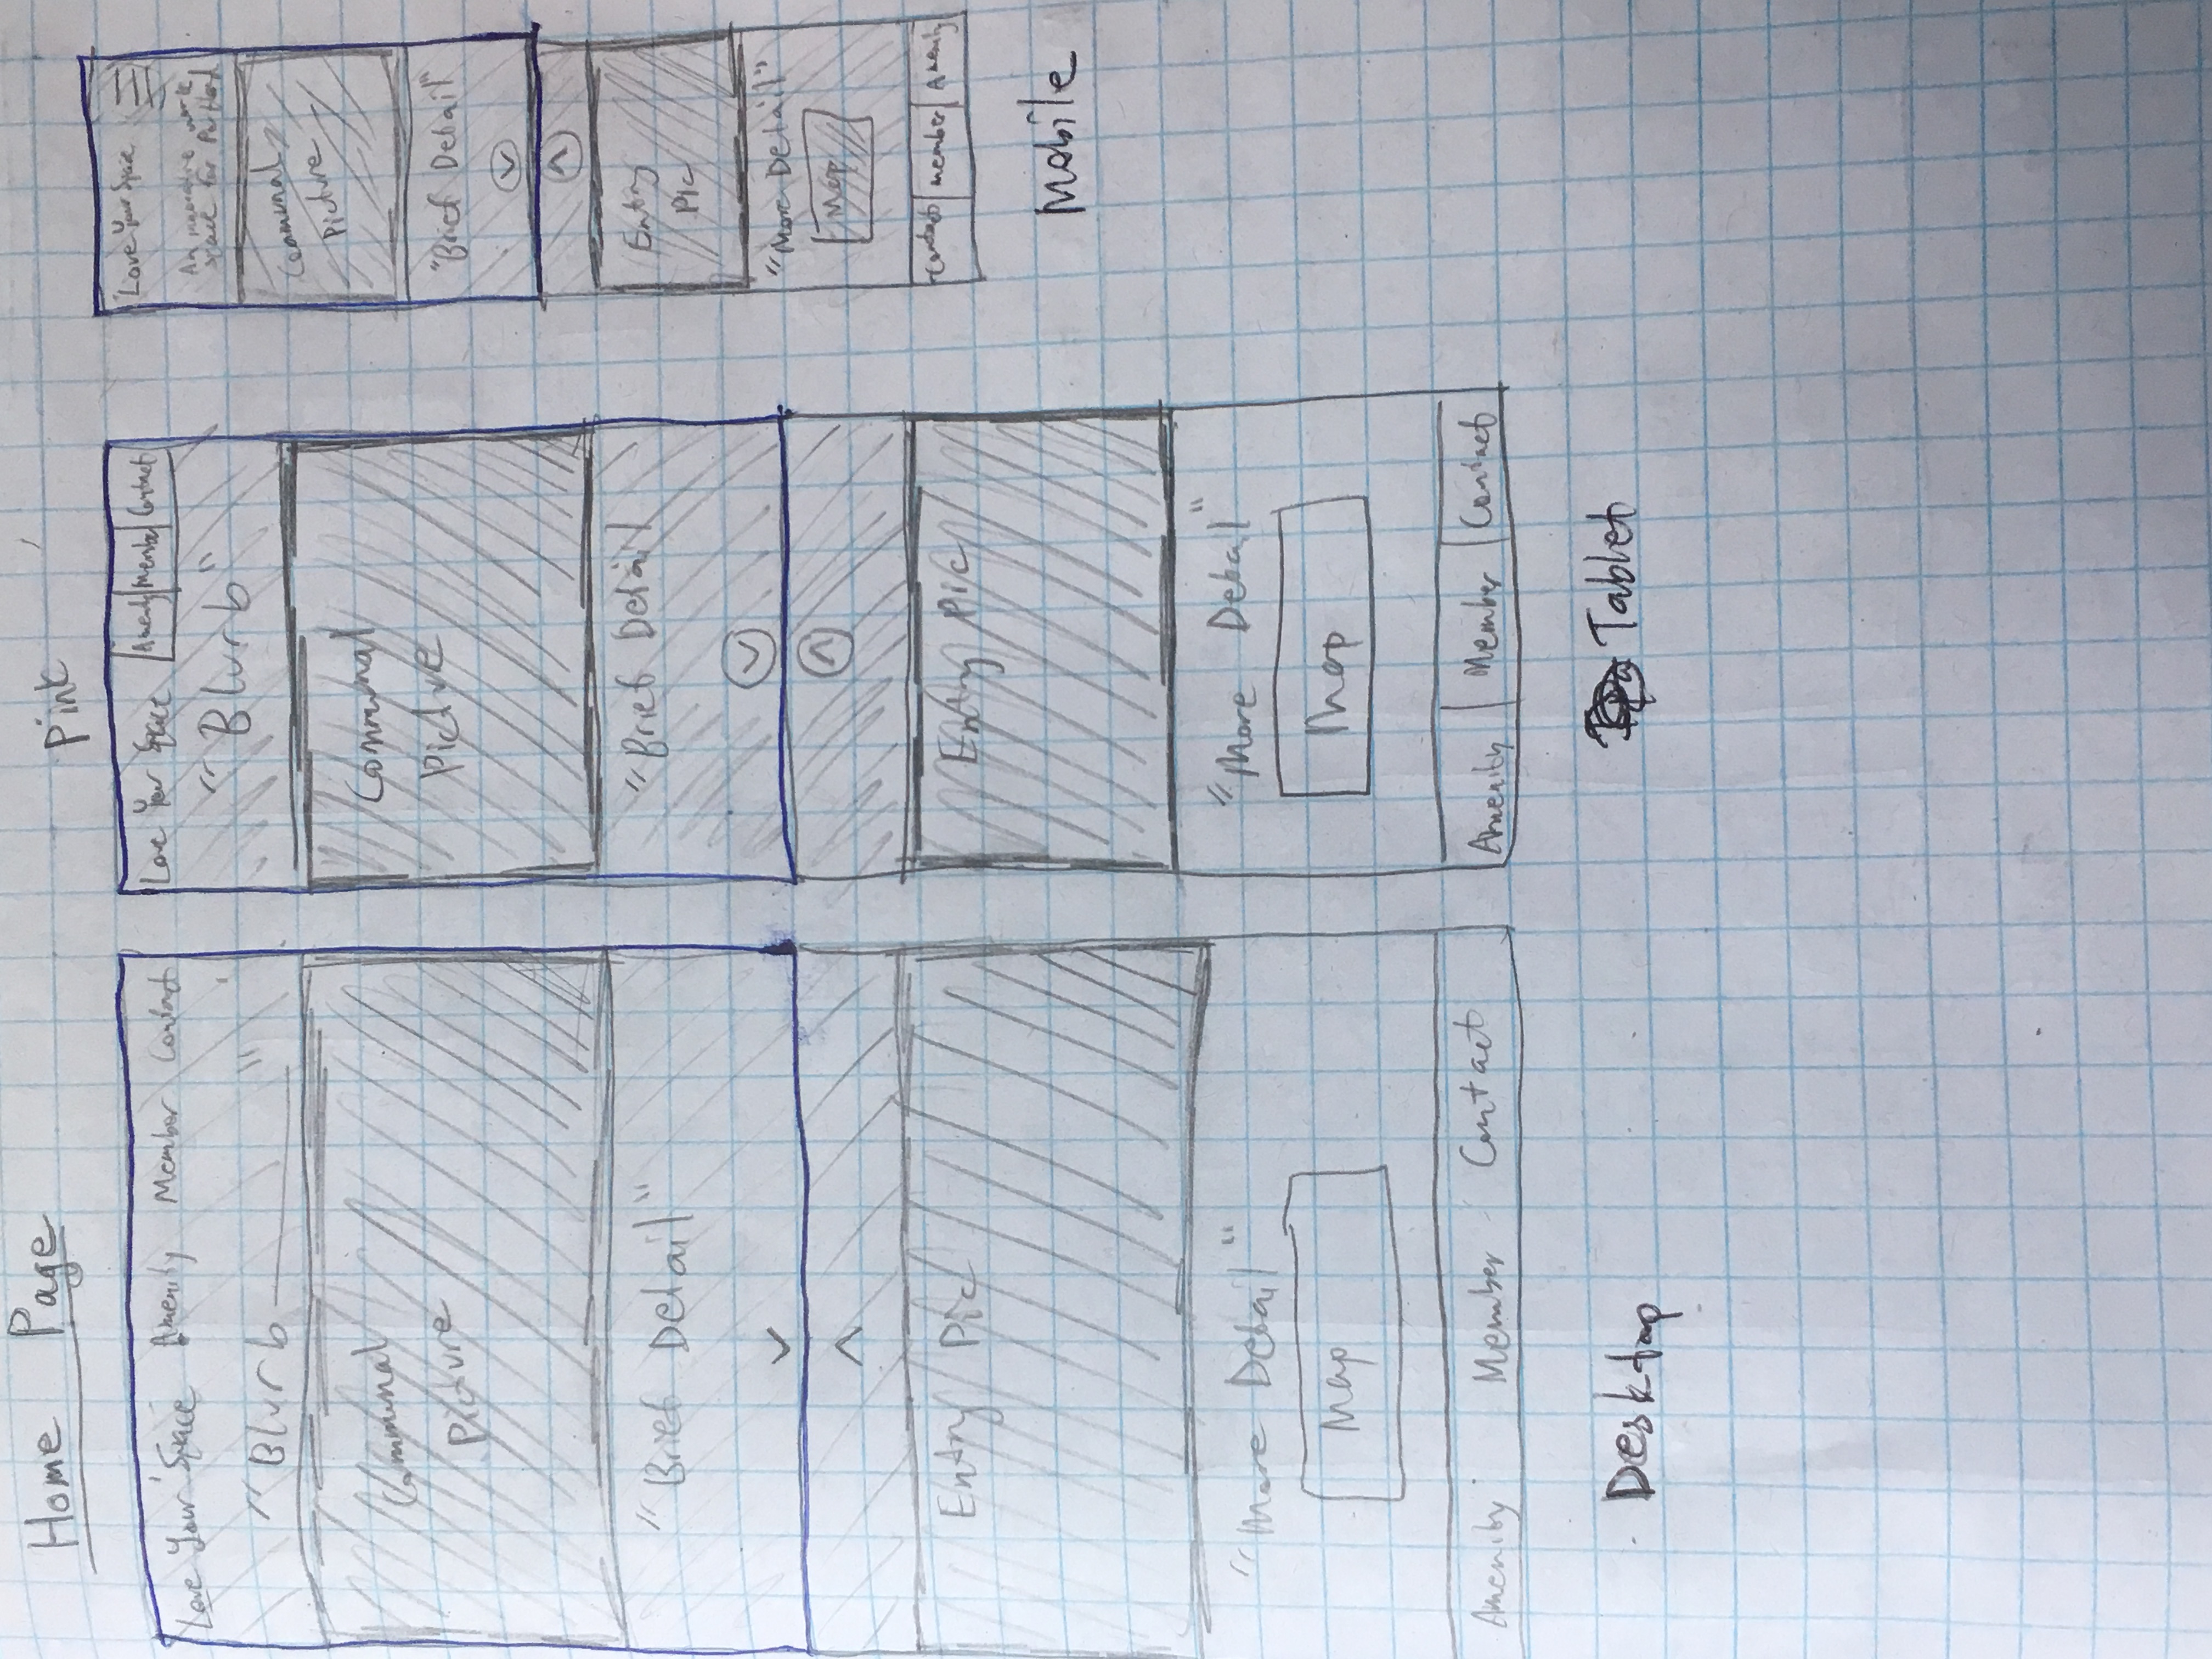 Home Page
Love Your Space Amenity Member Contact
"Blurb"
Communal
Picture
"Brief Detail"
Entry Pic
"More Detail"
Map
Amenity Member Contact
Desktop
Pink
Love Your Space Amenity Member Contact
"Blurb"
Communal
Picture
"Brief Detail
Entry Pic
"More Detail"
Map
Amenity Member Contact
Tablet
Love Your Space
An work
space for Portland
Communal
Picture
"Brief Detail"
Entry
Pic
"More Detail"
Map
Contact member Amenity
Mobile